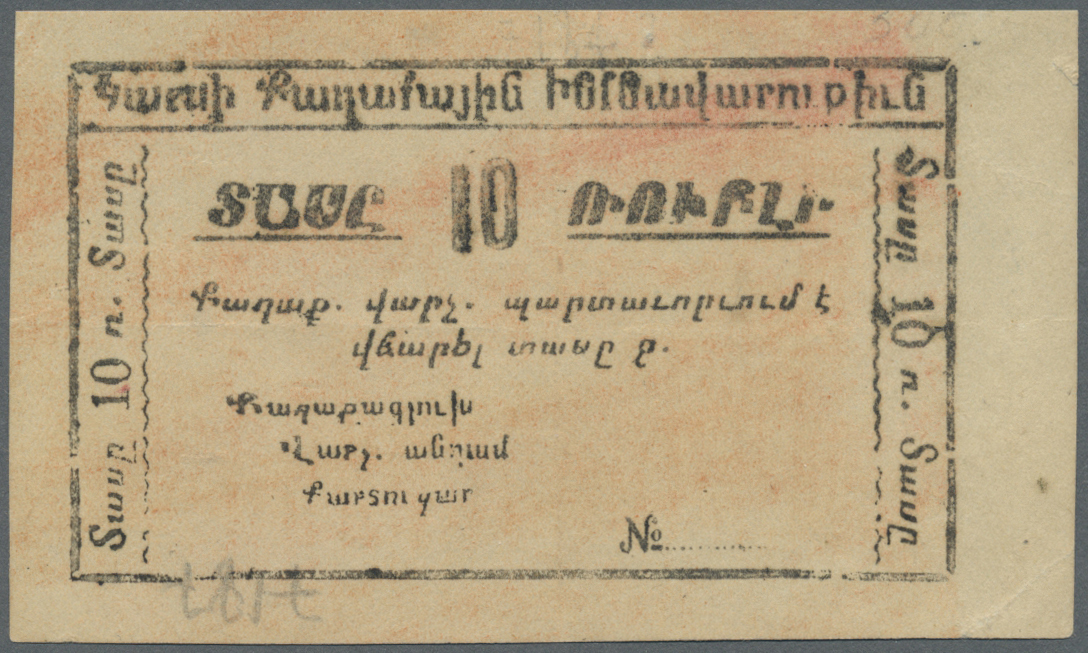 Կարսի Քաղաքային Ինքնավարութիւն
ՏԱՍԸ 10 ՌՈՒԲԼԻ
Քաղաք. վարչ. պարտաւորւում է
վճարել տասը ռ.
Քաղաքագլուխ
Վարչ. անդամ
Քարտուղար
№
Տասը 10 ռ. Տասը
Տասը 10 ռ. Տասը